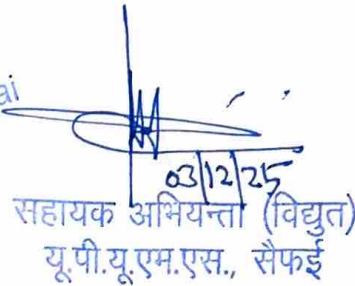 ai
03/12/25
सहायक अभियन्ता (विद्युत)
यू.पी.यू.एम.एस., सैफई